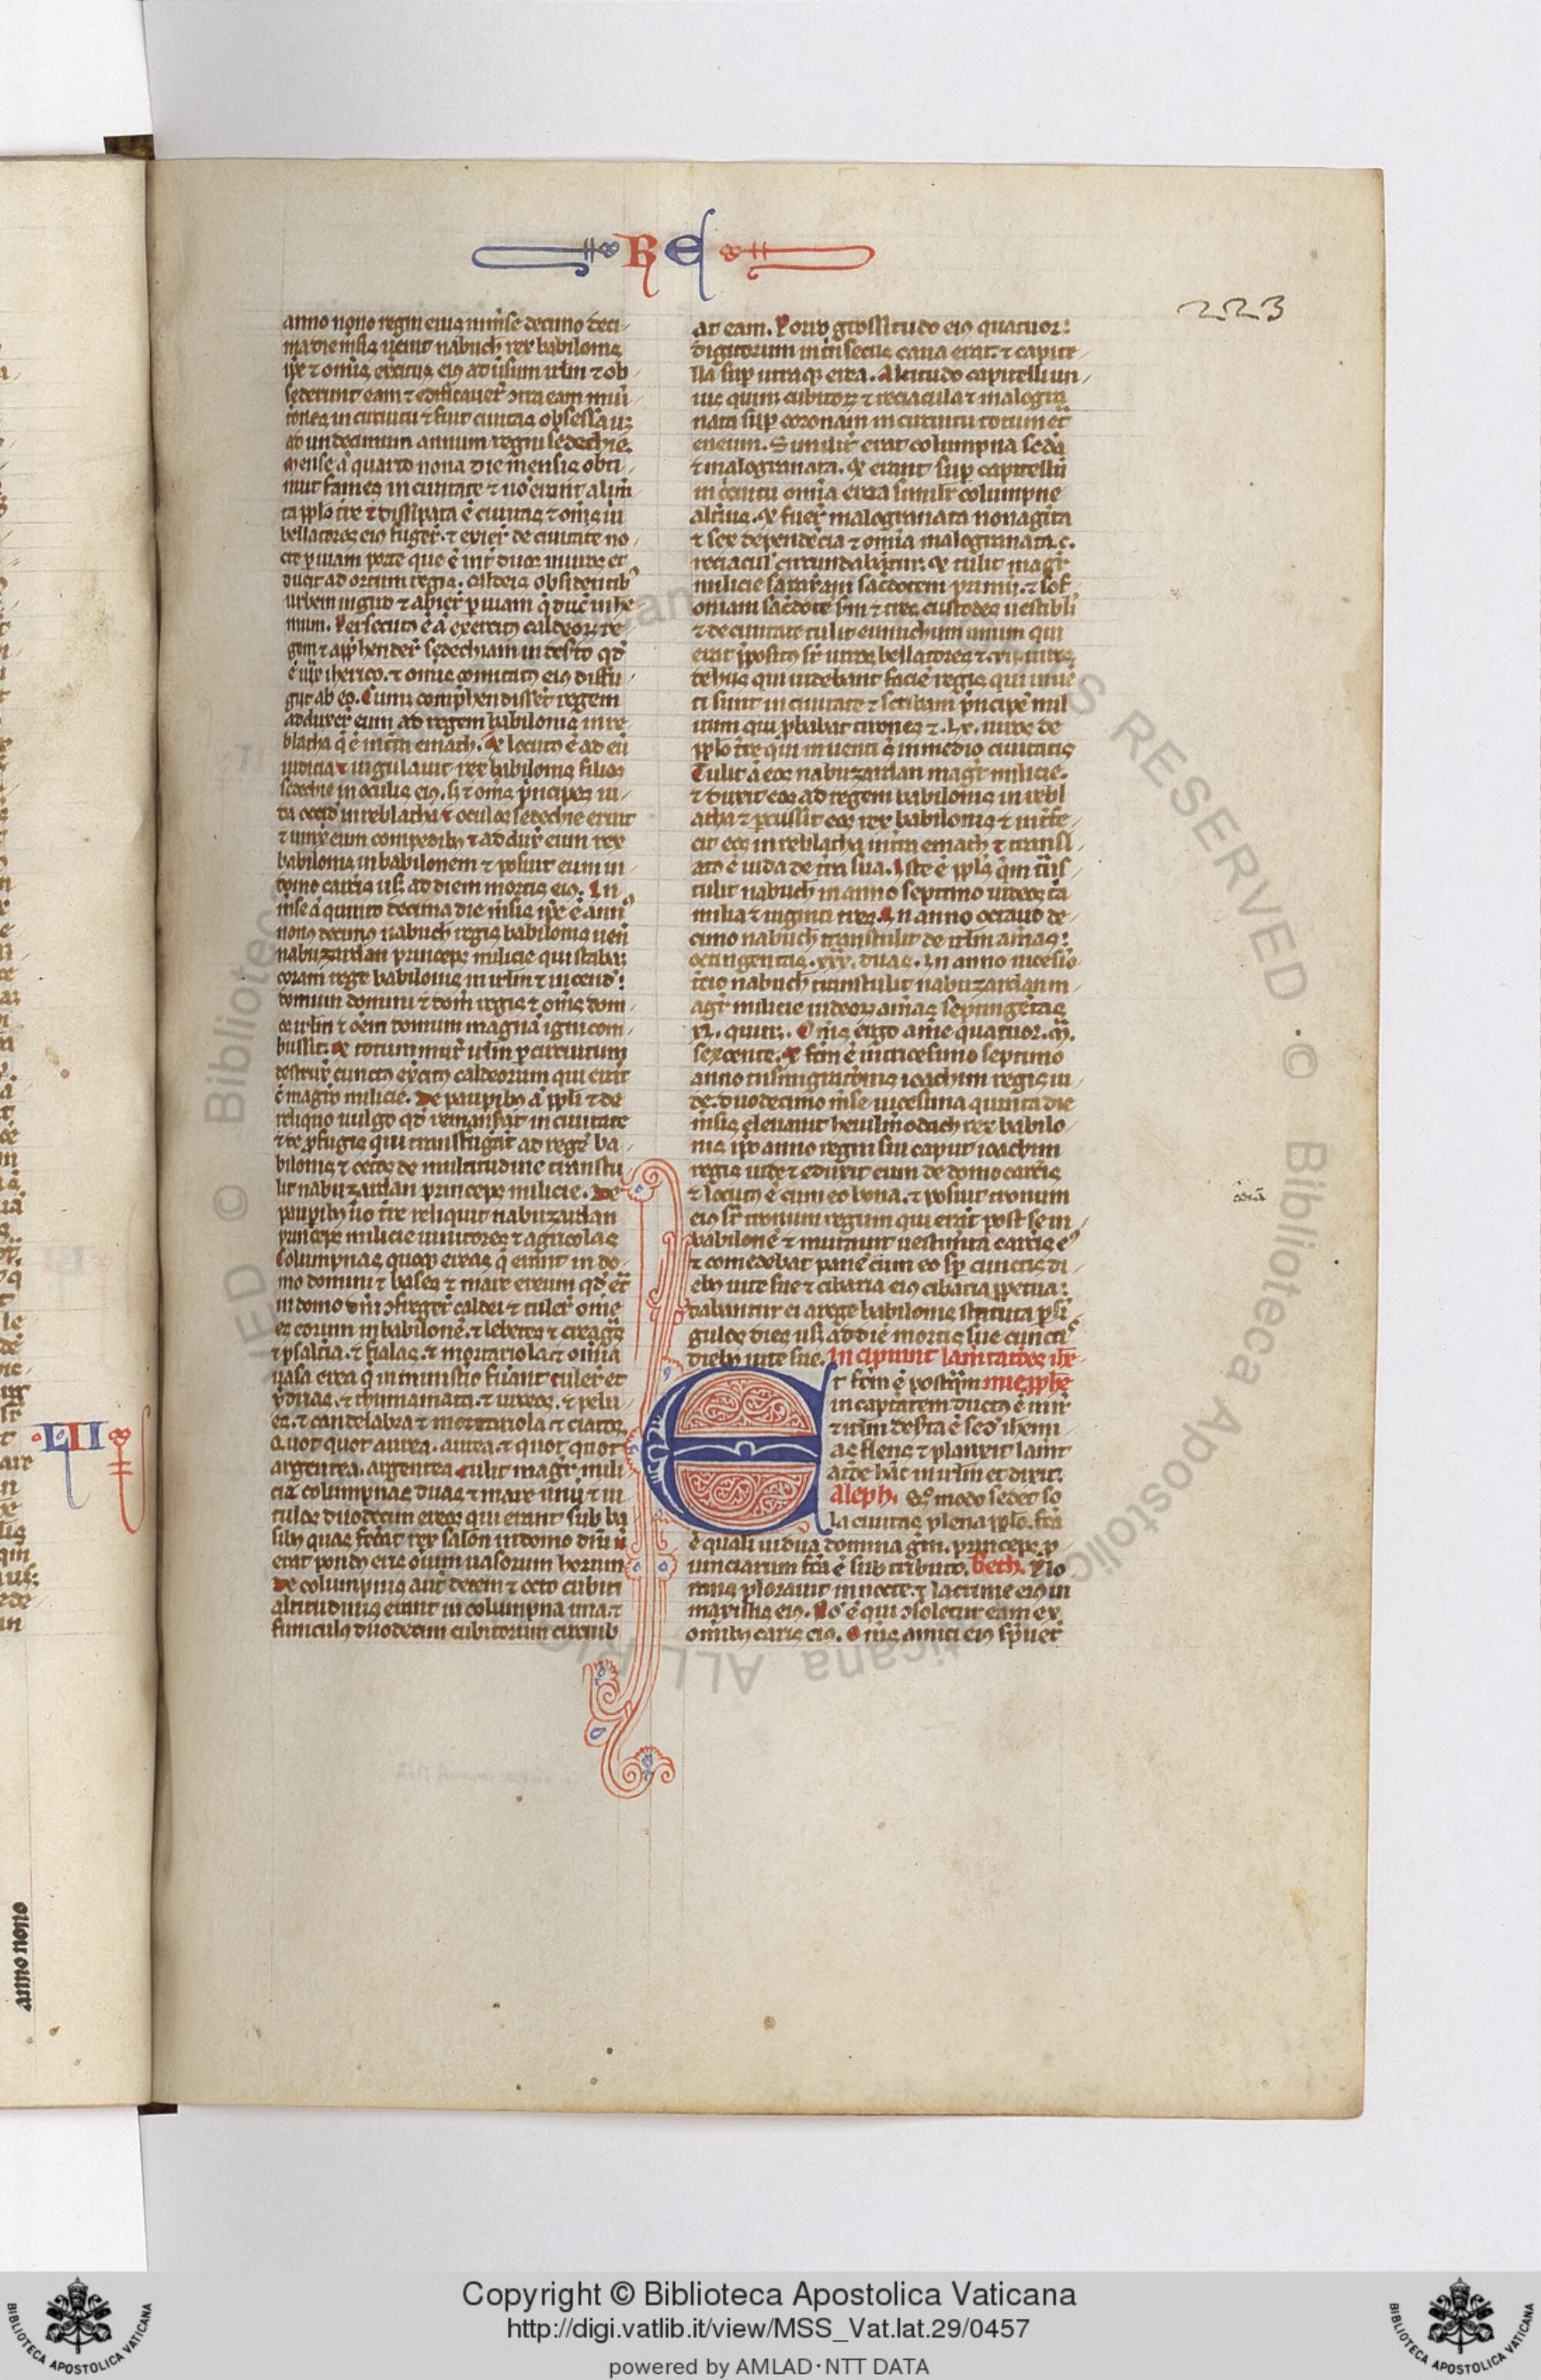 R E
223
anno nono regni eius in mse decimo deci
ma die msis uenit nabuch rex babilonis
ipe ⁊ omis exercitus eius aduisum irlm ⁊ ob
sederunt eam ⁊ edificauer ɔtra eam muni
tiones in circuitu ⁊ fuit ciuitas obsessa usq
ad undecimum annum regni sedechie.
mense a quarto nona die mensis obti
nuit fames in ciuitate ⁊ no erant alim
ta pplo tre ⁊ dissipata e ciuitas ⁊ oms ui
bellatores eius fuger. ⁊ exier de ciuitate no
cte p uiam porte que e int duos muros et
ducit ad ortum regis. caldeis obsidentib
urbem in giro ⁊ abier p uiam q duc in he
mum. Persecutus e a exercitus caldeorum re
gem ⁊ apphender sedechiam in deserto qd
e iux iherico. ⁊ omis comitatus eius diffu
git ab eo. Cum comphendisset regem
adduxer eum ad regem babilonis in re
blatha q e in tra emath. et locutus e ad eu
iudicia et iugulauit rex babilonis filios
sedechie in oculis eius. s ⁊ oms pncipes iu
da occid in reblatha et oculos sedechie eruit
⁊ uinx eum compedibus et addux eum rex
babilonis in babilonem ⁊ posuit eum in
domo carcis usq ad diem mortis eius. In
mse a quinto decima die msis ipe e ann
nonus decimus nabuch regis babilonis uen
nabuzardan princeps milicie qui stabat
coram rege babilonis in irlm ⁊ incend
domum domini ⁊ dom regis ⁊ oms dom
os irlm ⁊ oem domum magna igni com
bussit. et totum mur irlm p circuitum
destrux cunctus exercitus caldeorum qui erat
c magro milicie. De paupibus a ppli ⁊ de
reliquo uulgo qd remanserat in ciuitate
⁊ de pfugis qui transfugerat ad rege ba
bilonis ⁊ ceteros de multitudine transtu
lit nabuzardan princeps milicie. De
paupibus uo tre reliquit nabuzardan
princeps milicie uinitores ⁊ agricolas
Columpnas quoq ereas q erant in do
mo domini ⁊ bases ⁊ mare ereum qd erat
in domo dni ɔfreger caldei ⁊ tuler ome
es eorum in babilone. ⁊ lebetes ⁊ creagras
⁊ psalteria. ⁊ fialas. ⁊ mortariola ⁊ omia
uasa erea q in ministio fuerant tuler et
ydrias. ⁊ thimiamata. ⁊ urceos. ⁊ pelu
es. ⁊ candelabra ⁊ mortariola ⁊ ciatos.
Quot quot aurea. aurea. ⁊ quot quot
argentea. argentea tulit magr mili
cie columpnas duas ⁊ mare unu ⁊ ui
tulos duodecim ereos qui erant sub ba
sibus quas fecat rex salon in domo dni n
erat pondus eris oium uasorum horum
De columpnis aut decem ⁊ octo cubiti
altitudinis erant in columpna una. ⁊
funiculus duodecim cubitorum circuib
at eam. Porro grossitudo eius quatuor
digitorum intrinsecus caua erat. ⁊ capite
lla sup utraq erea. Altitudo capitelli un
ius quinq cubitorum ⁊ reciacula ⁊ malogra
nata sup coronam in circuitu totum et
eneum. Similit erat columpna seda
⁊ malogranata. et erant sup capitellu
in circuitu omia erea similr columpne
altius. et fuer malogranata nonaginta
⁊ sex dependecia ⁊ omia malogranata. c.
reciacul circundabantur. et tulit magr
milicie sararam sacdotem primu. ⁊ sof
oniam sacdote sm ⁊ tres custodes uestibli
⁊ de ciuitate tulit eunuchum unum qui
erat ppositus sr uiros bellatores ⁊ .vii. uiros
de hiis qui uidebant facie regis qui inue
ti sunt in ciuitate ⁊ scribam pncipe mil
itum qui pbabat tirones ⁊ .lx. uiros de
pplo tre qui inuenti s in medio ciuitatis
Tulit a eos nabuzardan magr milicie.
⁊ duxit eos ad regem babilonis in rebl
atha ⁊ pcussit eos rex babilonis ⁊ intfe
cit eos in reblatha in tra emath et transl
atus e iuda de tra sua. Iste e ppls que trns
tulit nabuch in anno septimo iudeos tria
milia ⁊ uiginti tres. In anno octauo de
cimo nabuch transtulit de irlm aimas
octingentas. xxx. duas. In anno uicesio
tcio nabuch transtulit nabuzardan m
agr milicie iudeorum aimas septingetas
xl. quinq. Oms ergo aime quatuor. m.
sexcente. et fcm e in tricesimo septimo
anno tnsmigracionis ioachim regis iu
de. duodecimo mse uicesima quinta die
msis eleuauit heuilmodach rex babilo
nis ipo anno regni sui caput ioachim
regis iude ⁊ eduxit eum de domo carcis
⁊ locutus e cum eo bona. ⁊ posuit tronum
eius sr tronum regum qui erat post se in
babilone ⁊ mutauit uestimta carcis eius
⁊ comedebat pane cum eo sp cunctis di
ebus uite sue ⁊ cibaria eius cibaria ppetua
dabantur ei a rege babilonis statuta p si
gulos dies usq ad die mortis sue cunctis
diebus uite sue. Incipiunt lamtatoes ihe
Et fcm e postqm mie pphe
in captitatem ductus e isrl
⁊ irlm deserta e sed ihemi
as flens ⁊ planxit lamt
atoe hac in irlm et dixit
Aleph. Quo modo sedet so
la ciuitas plena pplo. fca
e quasi uidua domina gm. princeps p
uinciarum fca e sub tributo. Beth. Plo
rans plorauit in nocte. ⁊ lacrime eius in
maxillis eius. No e qui ɔsoletur eam ex
omibus caris eius. Oms amici eius spuer
LII
anno nono
Copyright © Biblioteca Apostolica Vaticana
http://digi.vatlib.it/view/MSS_Vat.lat.29/0457
powered by AMLAD·NTT DATA
BIBLIOTECA APOSTOLICA VATICANA
BIBLIOTECA APOSTOLICA VATICANA